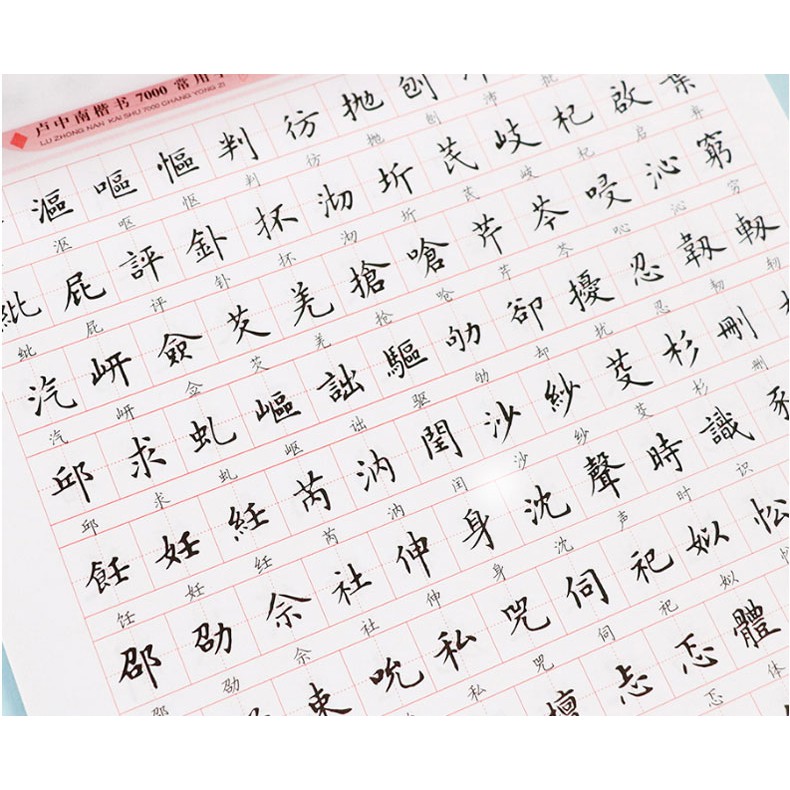 卢中南楷书 7000 常用
LU ZHONG NAN KAI SHU 7000 CHANG YONG ZI
漚 嘔 慪 判 彷 拋 刨
沤 呕 怄 判 彷 抛 刨 沛 批
紕 屁 評 釙 抔 沏 圻 芪 岐 杞 啟 棄
纰 屁 评 钋 抔 沏 圻 芪 岐 杞 启 弃
汽 岍 僉 芡 羌 搶 嗆 芹 芩 唚 沁 窮
汽 岍 佥 芡 羌 抢 呛 芹 芩 吣 沁 穷
邱 求 虬 嶇 詘 驅 劬 卻 擾 忍 韌 軔
邱 求 虬 岖 诎 驱 劬 却 扰 忍 韧 轫
飪 妊 紝 芮 汭 閏 沙 紗 芟 杉 刪
饪 妊 纴 芮 汭 闰 沙 纱 芟 杉 删
邵 劭 佘 社 伸 身 沈 聲 時 識 豕
邵 劭 佘 社 伸 身 沈 声 时 识
束 吮 私 兕 伺 祀 姒 忪
私 兕 伺 祀 姒
壇 忐 忑 體
忑 体